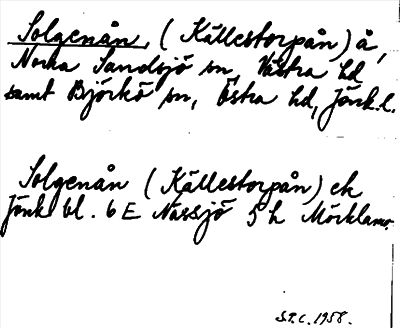 Solgenån, (Källestorpån) å,
Norra Sandsjö sn, Västra hd
samt Björkö sn, Östra hd, Jönk.l.
Solgenån (Källestorpån) ek
Jönk bl. 6 E Nässjö 5 h Mörklamr.
S.T.C. 1958.